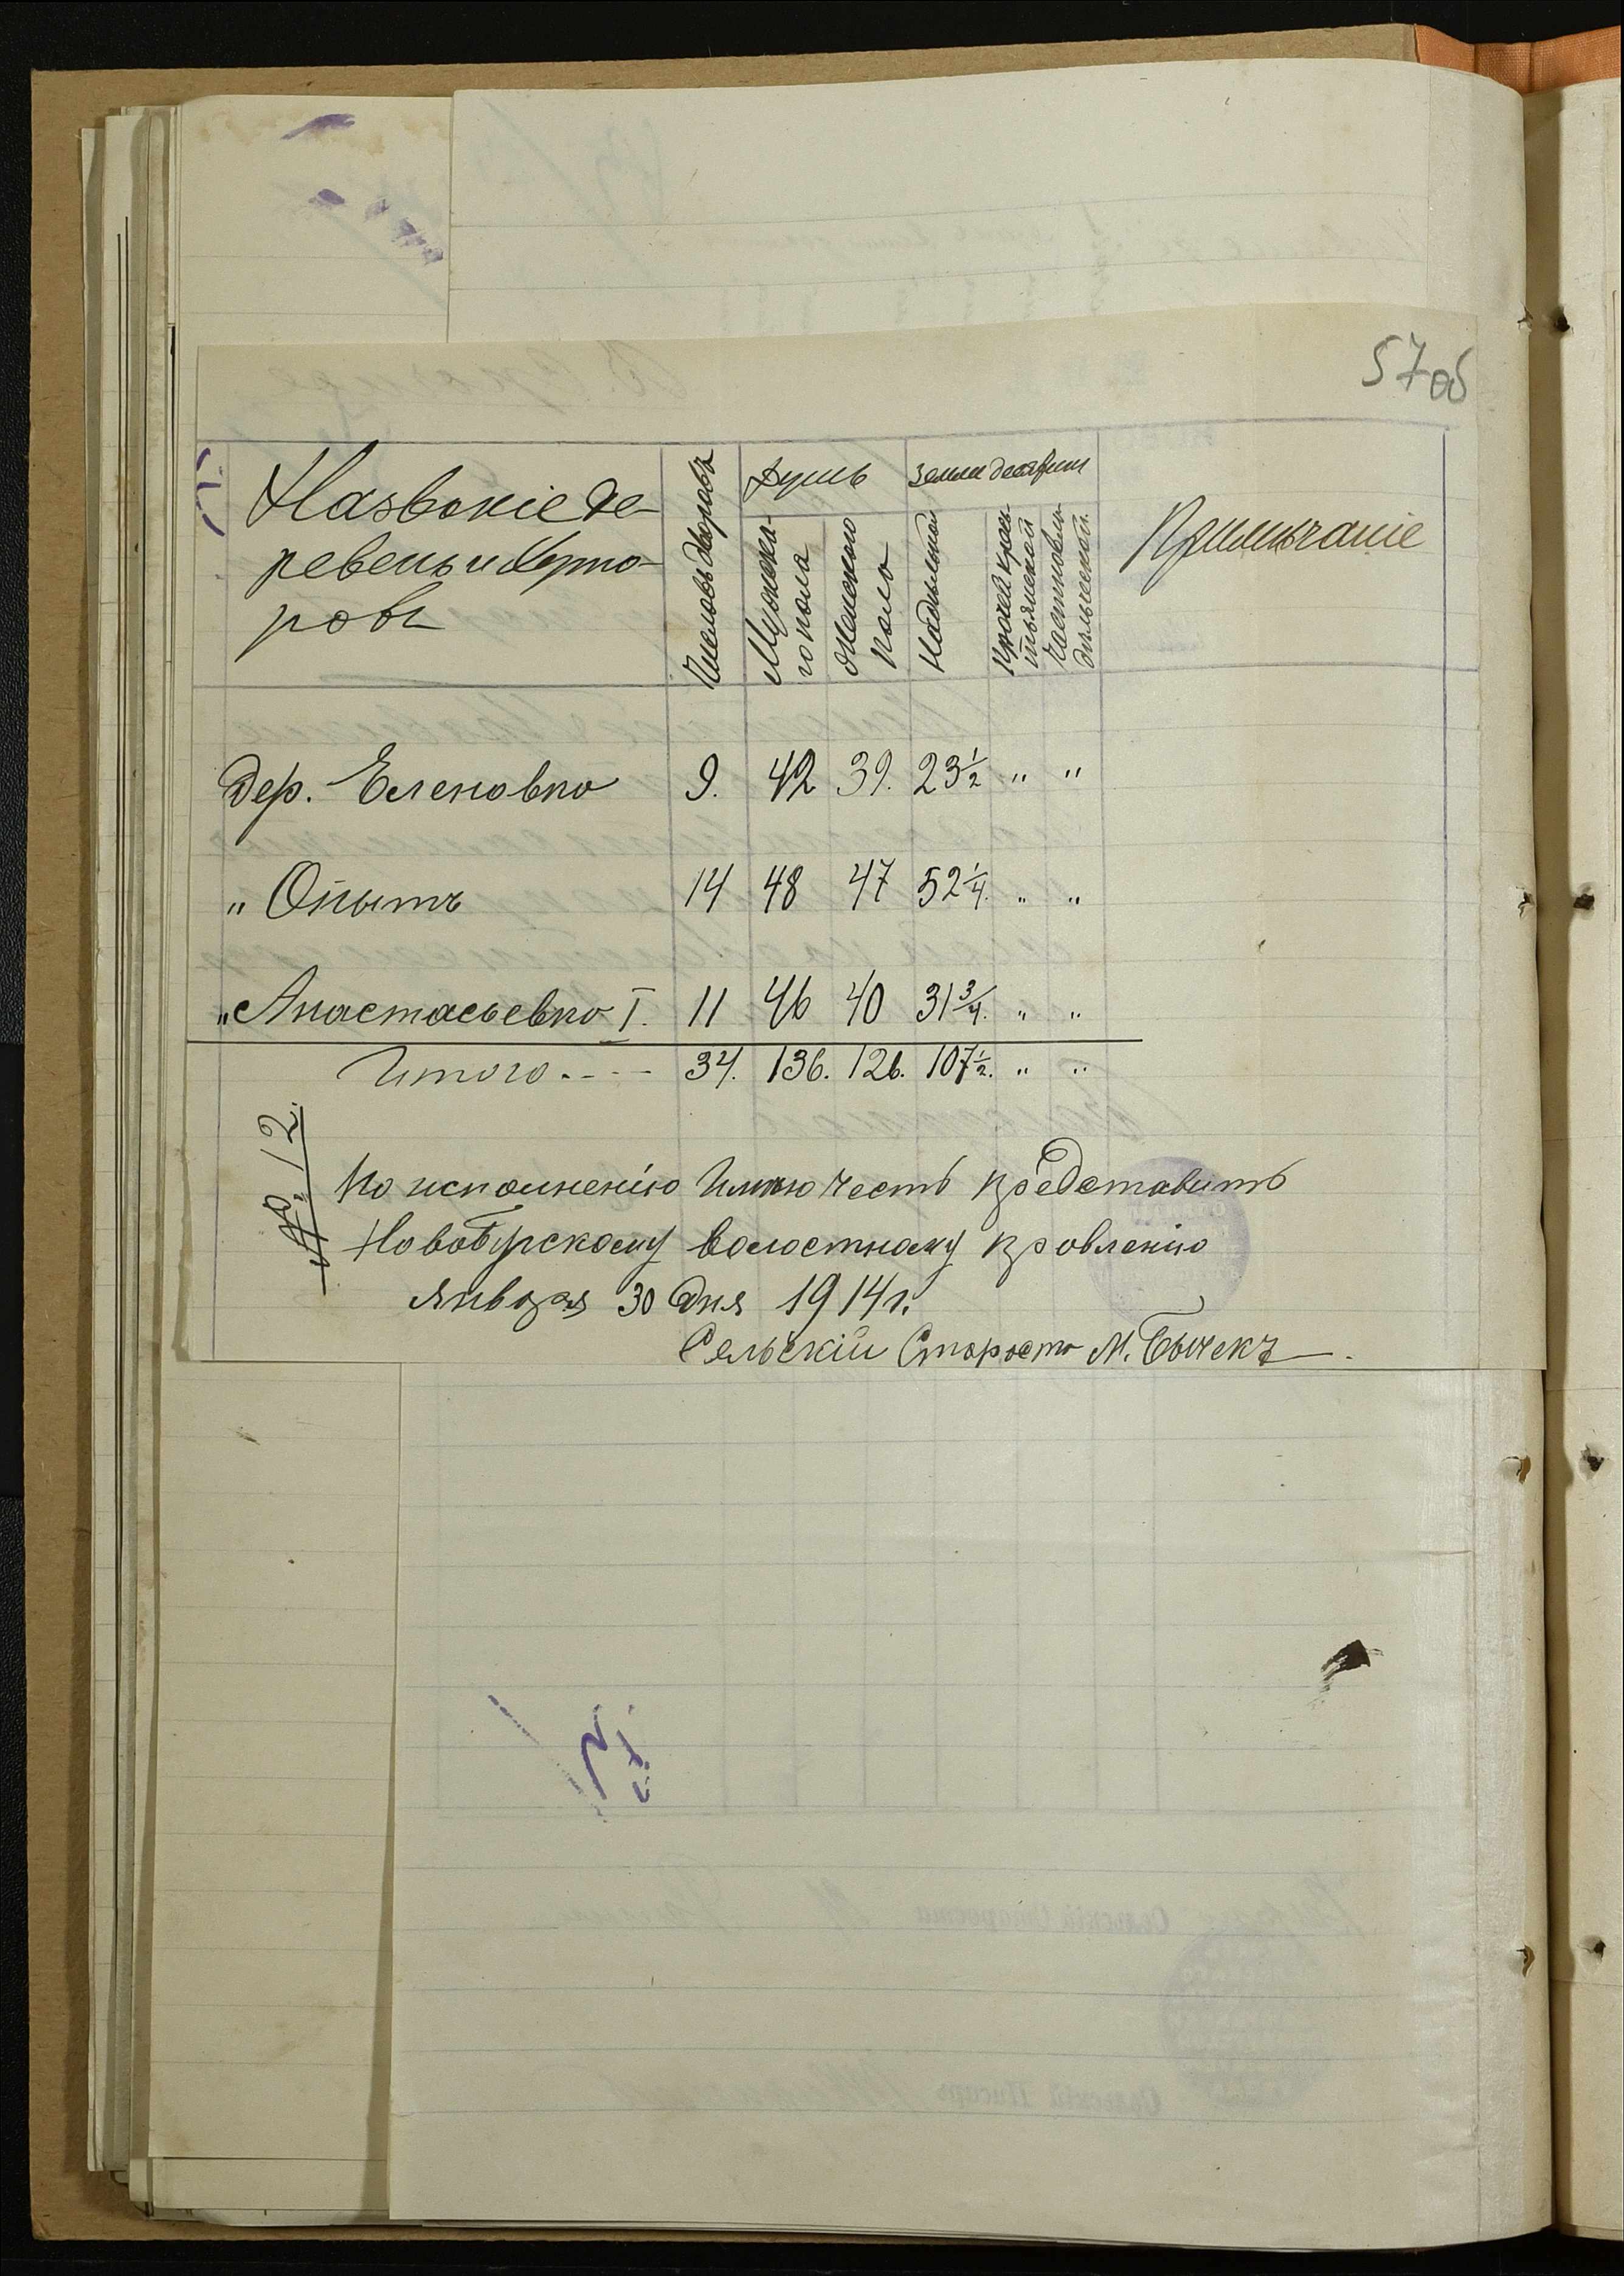 57об
Названіе де-
ревень и Хуто-
ровъ
Числовъ дворовъ
Душъ
Мужска-
го пола
Женского
пола
Земли десятин
Надѣльной
Прочей крес-
тьянской
Частновла-
дѣльческой
Примѣчаніе
Дер. Еленовка 9. 42 39. 23 1/2 " "
" Опытъ 14 48 47 52 1/4. " "
" Анастасьевка I. 11 46 40 31 3/4. " "
Итого - - - - 34. 136. 126. 107 1/2. " "
№ 12.
По исполненію Имѣю честь представить
Новобугскому волостному правленію
Января 30 дня 1914 г.
Сельскій Староста М. Бычекъ